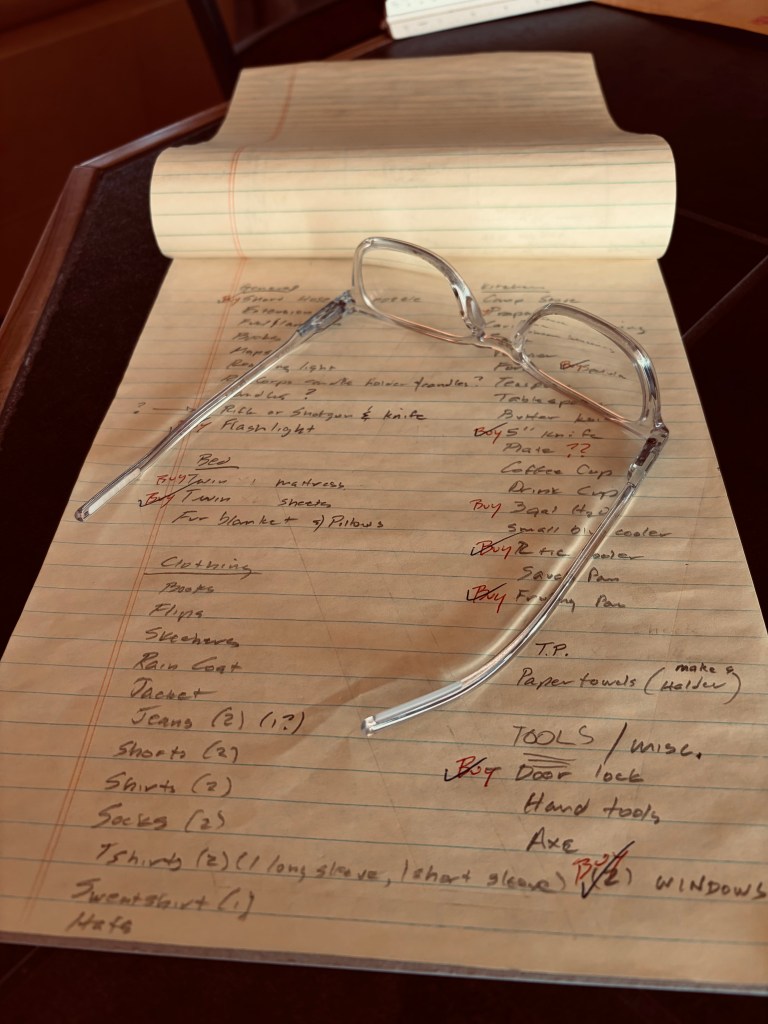 General
Short Hose
Extension
Books
Maps
light
candle holder / candles ?
? Rifle or Shotgun & knife
Flashlight
Bed
BUY Twin mattress
Buy Twin sheets
Fur blanket w/ Pillows
Clothing
Books
Flips
Skechers
Rain Coat
Jacket
Jeans (2) (1?)
Shorts (2)
Shirts (2)
Socks (2)
Tshirts (2) (1 long sleeve, 1 short sleeve)
Sweatshirt (1)
Hats
Kitchen
Camp Stove
Butter
Buy 5" knife
Plate ??
Coffee Cup
Drink Cup
BUY 3gal H2O
Small cooler
Buy
Pan
Buy Frying Pan
T.P.
Paper towels (make a Holder)
TOOLS / misc.
Buy Door lock
Hand tools
Axe
BUY (2) WINDOWS